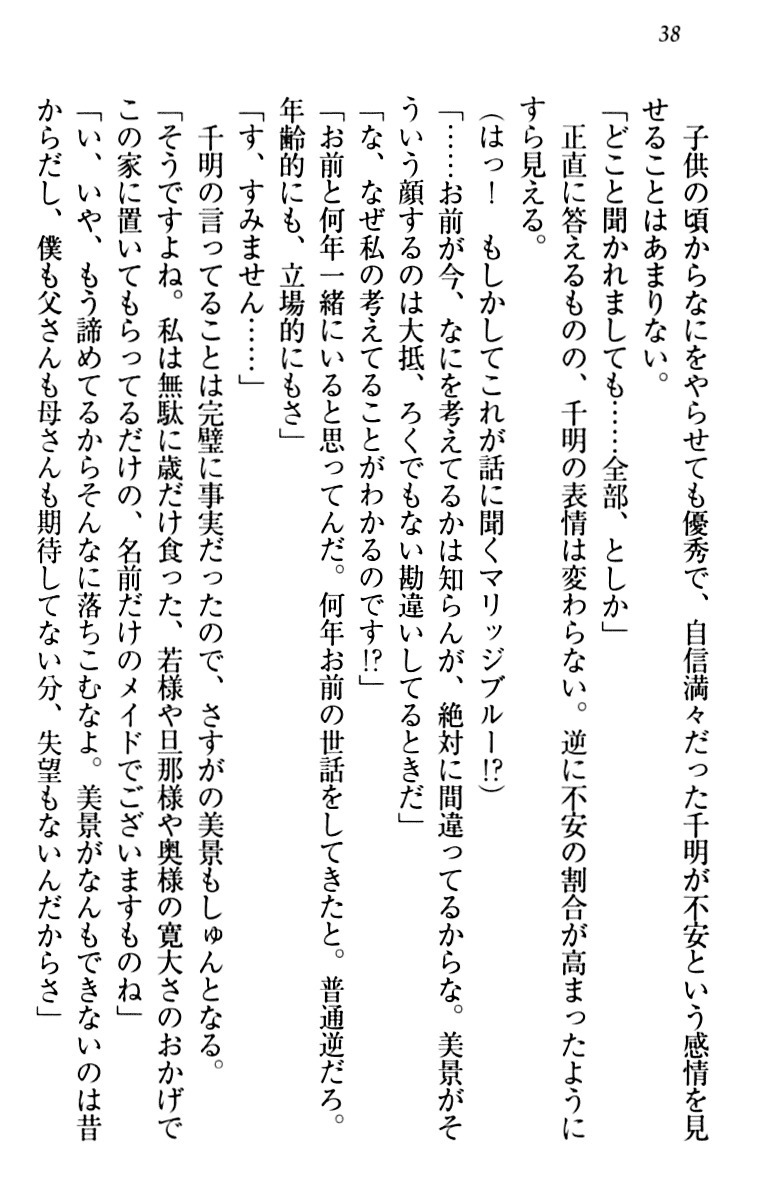 38
子供の頃からなにをやらせても優秀で、自信満々だった千明が不安という感情を見
せることはあまりない。
「どこと聞かれましても……全部、としか」
正直に答えるものの、千明の表情は変わらない。逆に不安の割合が高まったように
すら見える。
(はっ！　もしかしてこれが話に聞くマリッジブルー!?)
「……お前が今、なにを考えてるかは知らんが、絶対に間違ってるからな。美景がそ
ういう顔するのは大抵、ろくでもない勘違いしてるときだ」
「な、なぜ私の考えてることがわかるのです!?」
「お前と何年一緒にいると思ってんだ。何年お前の世話をしてきたと。普通逆だろ。
年齢的にも、立場的にもさ」
「す、すみません……」
千明の言ってることは完璧に事実だったので、さすがの美景もしゅんとなる。
「そうですよね。私は無駄に歳だけ食った、若様や旦那様や奥様の寛大さのおかげで
この家に置いてもらってるだけの、名前だけのメイドでございますものね」
「い、いや、もう諦めてるからそんなに落ちこむなよ。美景がなんもできないのは昔
からだし、僕も父さんも母さんも期待してない分、失望もないんだからさ」